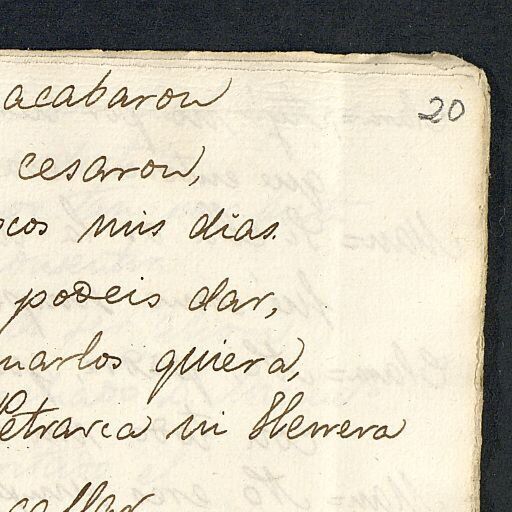 acabaron
20
cesaron,
mis dias.
podeis dar,
quiera,
Petrarca ni Herrera